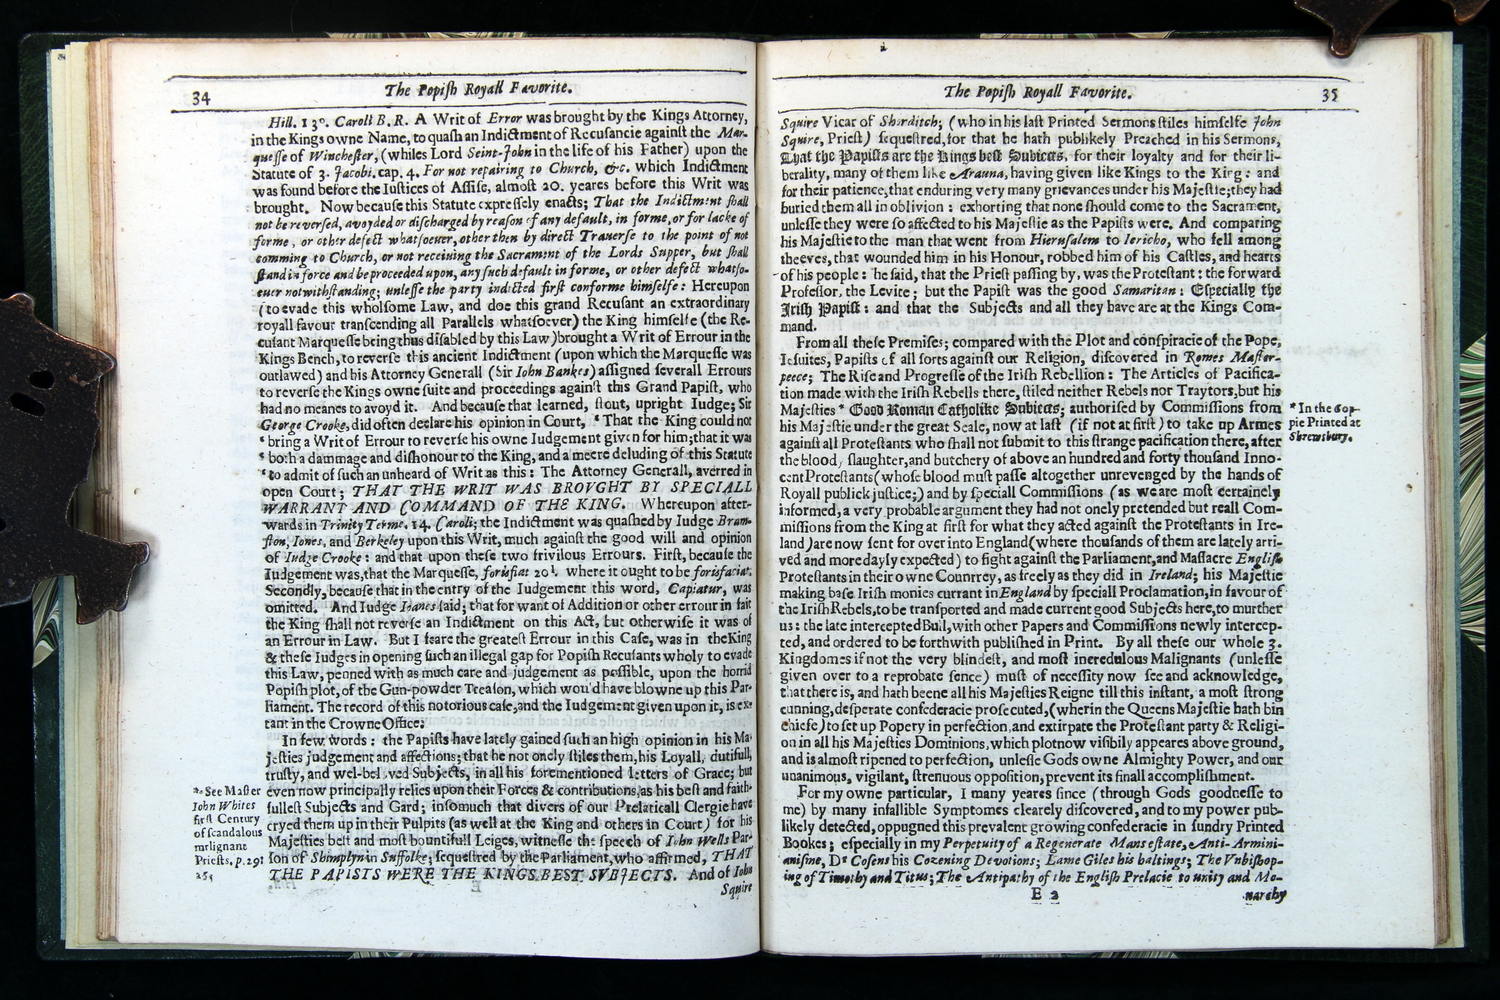 34
The Popiſh Royall Favorite.
Hill. 13º. Caroli B. R. A Writ of Error was brought by the Kings Attorney,
in the Kings owne Name, to quaſh an Indictment of Recuſancie againſt the Mar-
queſſe of Wincheſter, (whiles Lord Seint-John in the life of his Father) upon the
Statute of 3. Jacobi. cap. 4. For not repairing to Church, &c. which Indictment
was found before the Iuſtices of Aſſiſe, almoſt 20. yeares before this Writ was
brought. Now becauſe this Statute expreſſely enacts; That the Indictment ſhall
not be reverſed, avoyded or diſcharged by reaſon of any default, in forme, or for lacke of
forme, or other defect whatſoever, other then by direct Traverſe to the point of not
comming to Church, or not receiving the Sacrament of the Lords Supper, but ſhall
ſtand in force and be proceeded upon, any ſuch default in forme, or other defect whatſo-
ever notwithſtanding; unleſſe the party indicted firſt conforme himſelfe: Hereupon
(to evade this wholſome Law, and doe this grand Recuſant an extraordinary
royall favour tranſcending all Parallels whatſoever) the King himſelfe (the Re-
cuſant Marqueſſe being thus diſabled by this Law) brought a Writ of Errour in the
Kings Bench, to reverſe this ancient Indictment (upon which the Marqueſſe was
outlawed) and his Attorney Generall (Sir Iohn Bankes) aſſigned ſeverall Errours
to reverſe the Kings owne ſuite and proceedings againſt this Grand Papiſt, who
had no meanes to avoyd it. And becauſe that learned, ſtout, upright Iudge; Sir
George Crooke, did often declare his opinion in Court, ‘That the King could not
‘bring a Writ of Errour to reverſe his owne Iudgement given for him; that it was
‘both a dammage and diſhonour to the King, and a meere deluding of this Statute
‘to admit of ſuch an unheard of Writ as this: The Attorney Generall, averred in
open Court; THAT THE WRIT WAS BROVGHT BY SPECIALL
WARRANT AND COMMAND OF THE KING. Whereupon after-
wards in Trinity Terme. 14. Caroli; the Indictment was quaſhed by Iudge Bram-
ſton, Iones, and Berkeley upon this Writ, much againſt the good will and opinion
of Iudge Crooke: and that upon theſe two frivilous Errours. Firſt, becauſe the
Iudgement was, that the Marqueſſe, forisfiat 20 l. where it ought to be forisfaciat.
Secondly, becauſe that in the entry of the Iudgement this word, Capiatur, was
omitted. And Iudge Iones ſaid; that for want of Addition or other errour in fait
the King ſhall not reverſe an Indictment on this Act, but otherwiſe it was of
an Errour in Law. But I feare the greateſt Errour in this Caſe, was in the King
& theſe Iudges in opening ſuch an illegal gap for Popiſh Recuſants wholy to evade
this Law, penned with as much care and judgement as poſſible, upon the horrid
Popiſh plot, of the Gun-powder Treaſon, which would have blowne up this Par-
liament. The record of this notorious caſe, and the Iudgement given upon it, is ex-
tant in the Crowne Office.
In few words: the Papiſts have lately gained ſuch an high opinion in his Ma-
jeſties judgement and affections; that he not onely ſtiles them, his Loyall, dutifull,
truſty, and wel-beloved Subjects, in all his forementioned letters of Grace; but
even now principally relies upon their Forces & contributions, as his beſt and faith-
fulleſt Subjects and Gard; inſomuch that divers of our Prelaticall Clergie have
cryed them up in their Pulpits (as well at the King and others in Court) for his
Majeſties beſt and moſt bountifull Leiges, witneſſe the ſpeech of Iohn Wells Par-
ſon of Shimplyn in Suffolke; ſequeſtred by the Parliament, who affirmed, THAT
THE PAPISTS WERE THE KINGS BEST SVBJECTS. And of Iohn
* See Maſter
John Whites
firſt Century
of ſcandalous
malignant
Prieſts, p. 29:
Squire
E
35
The Popiſh Royall Favorite.
Squire Vicar of Shorditch; (who in his laſt Printed Sermons ſtiles himſelfe John
Squire, Prieſt) ſequeſtred, for that he hath publikely Preached in his Sermons,
That the Papiſts are the Kings beſt Subiects, for their loyalty and for their li-
berality, many of them like Arauna, having given like Kings to the King: and
for their patience, that enduring very many grievances under his Majeſtie; they had
buried them all in oblivion: exhorting that none ſhould come to the Sacrament,
unleſſe they were ſo affected to his Majeſtie as the Papiſts were. And comparing
his Majeſtie to the man that went from Hieruſalem to Iericho, who fell among
theeves, that wounded him in his Honour, robbed him of his Caſtles, and hearts
of his people: he ſaid, that the Prieſt paſſing by, was the Proteſtant: the forward
Profeſſor, the Levite; but the Papiſt was the good Samaritan: Eſpecially the
Iriſh Papiſt: and that the Subjects and all they have are at the Kings Com-
mand.
From all theſe Premiſes; compared with the Plot and conſpiracie of the Pope,
Ieſuites, Papiſts of all ſorts againſt our Religion, diſcovered in Romes Maſter-
peece; The Riſe and Progreſſe of the Iriſh Rebellion: The Articles of Pacifica-
tion made with the Iriſh Rebells there, ſtiled neither Rebels nor Traytors, but his
Majeſties * Good Roman Catholike Subiects; authoriſed by Commiſſions from
his Majeſtie under the great Seale, now at laſt (if not at firſt) to take up Armes
againſt all Proteſtants who ſhall not ſubmit to this ſtrange pacification there, after
the blood, ſlaughter, and butchery of above an hundred and forty thouſand Inno-
cent Proteſtants (whoſe blood muſt paſſe altogether unrevenged by the hands of
Royall publick juſtice;) and by ſpeciall Commiſſions (as we are moſt certainely
informed, a very probable argument they had not onely pretended but reall Com-
miſſions from the King at firſt for what they acted againſt the Proteſtants in Ire-
land) are now ſent for over into England (where thouſands of them are lately arri-
ved and more dayly expected) to fight againſt the Parliament, and Maſſacre Engliſh
Proteſtants in their owne Countrey, as freely as they did in Ireland; his Majeſtie
making baſe Iriſh monies currant in England by ſpeciall Proclamation, in favour of
the Iriſh Rebels, to be tranſported and made current good Subjects here, to murther
us: the late intercepted Bull, with other Papers and Commiſſions newly intercep-
ted, and ordered to be forthwith publiſhed in Print. By all theſe our whole 3.
Kingdomes if not the very blindeſt, and moſt incredulous Malignants (unleſſe
given over to a reprobate ſence) muſt of neceſſity now ſee and acknowledge,
that there is, and hath beene all his Majeſties Reigne till this inſtant, a moſt ſtrong
cunning, deſperate confederacie proſecuted, (wherin the Queens Majeſtie hath bin
chiefe) to ſet up Popery in perfection, and extirpate the Proteſtant party & Religi-
on in all his Majeſties Dominions, which plot now viſibily appeares above ground,
and is almoſt ripened to perfection, unleſſe Gods owne Almighty Power, and our
unanimous, vigilant, ſtrenuous oppoſition, prevent its finall accompliſhment.
For my owne particular, I many yeares ſince (through Gods goodneſſe to
me) by many infallible Symptomes clearely diſcovered, and to my power pub-
likely detected, oppugned this prevalent growing confederacie in ſundry Printed
Bookes; eſpecially in my Perpetuity of a Regenerate Mans eſtate, Anti-Armini-
aniſme, Dr Coſens his Cozening Devotions; Lame Giles his haltings; The Vnbiſhop-
ing of Timothy and Titus; The Antipathy of the Engliſh Prelacie to unity and Mo-
* In the Cop-
pie Printed at
Shrewsbury.
E 2
narchy